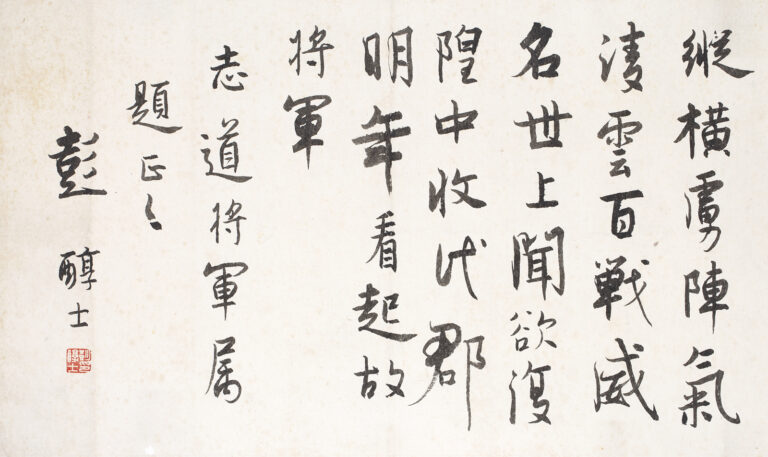 縱橫虜陣氣
淩雲百戰威
名世上聞欲復
隍中收代郡
明年看起故
將軍
志道將軍属
題正之
彭醇士